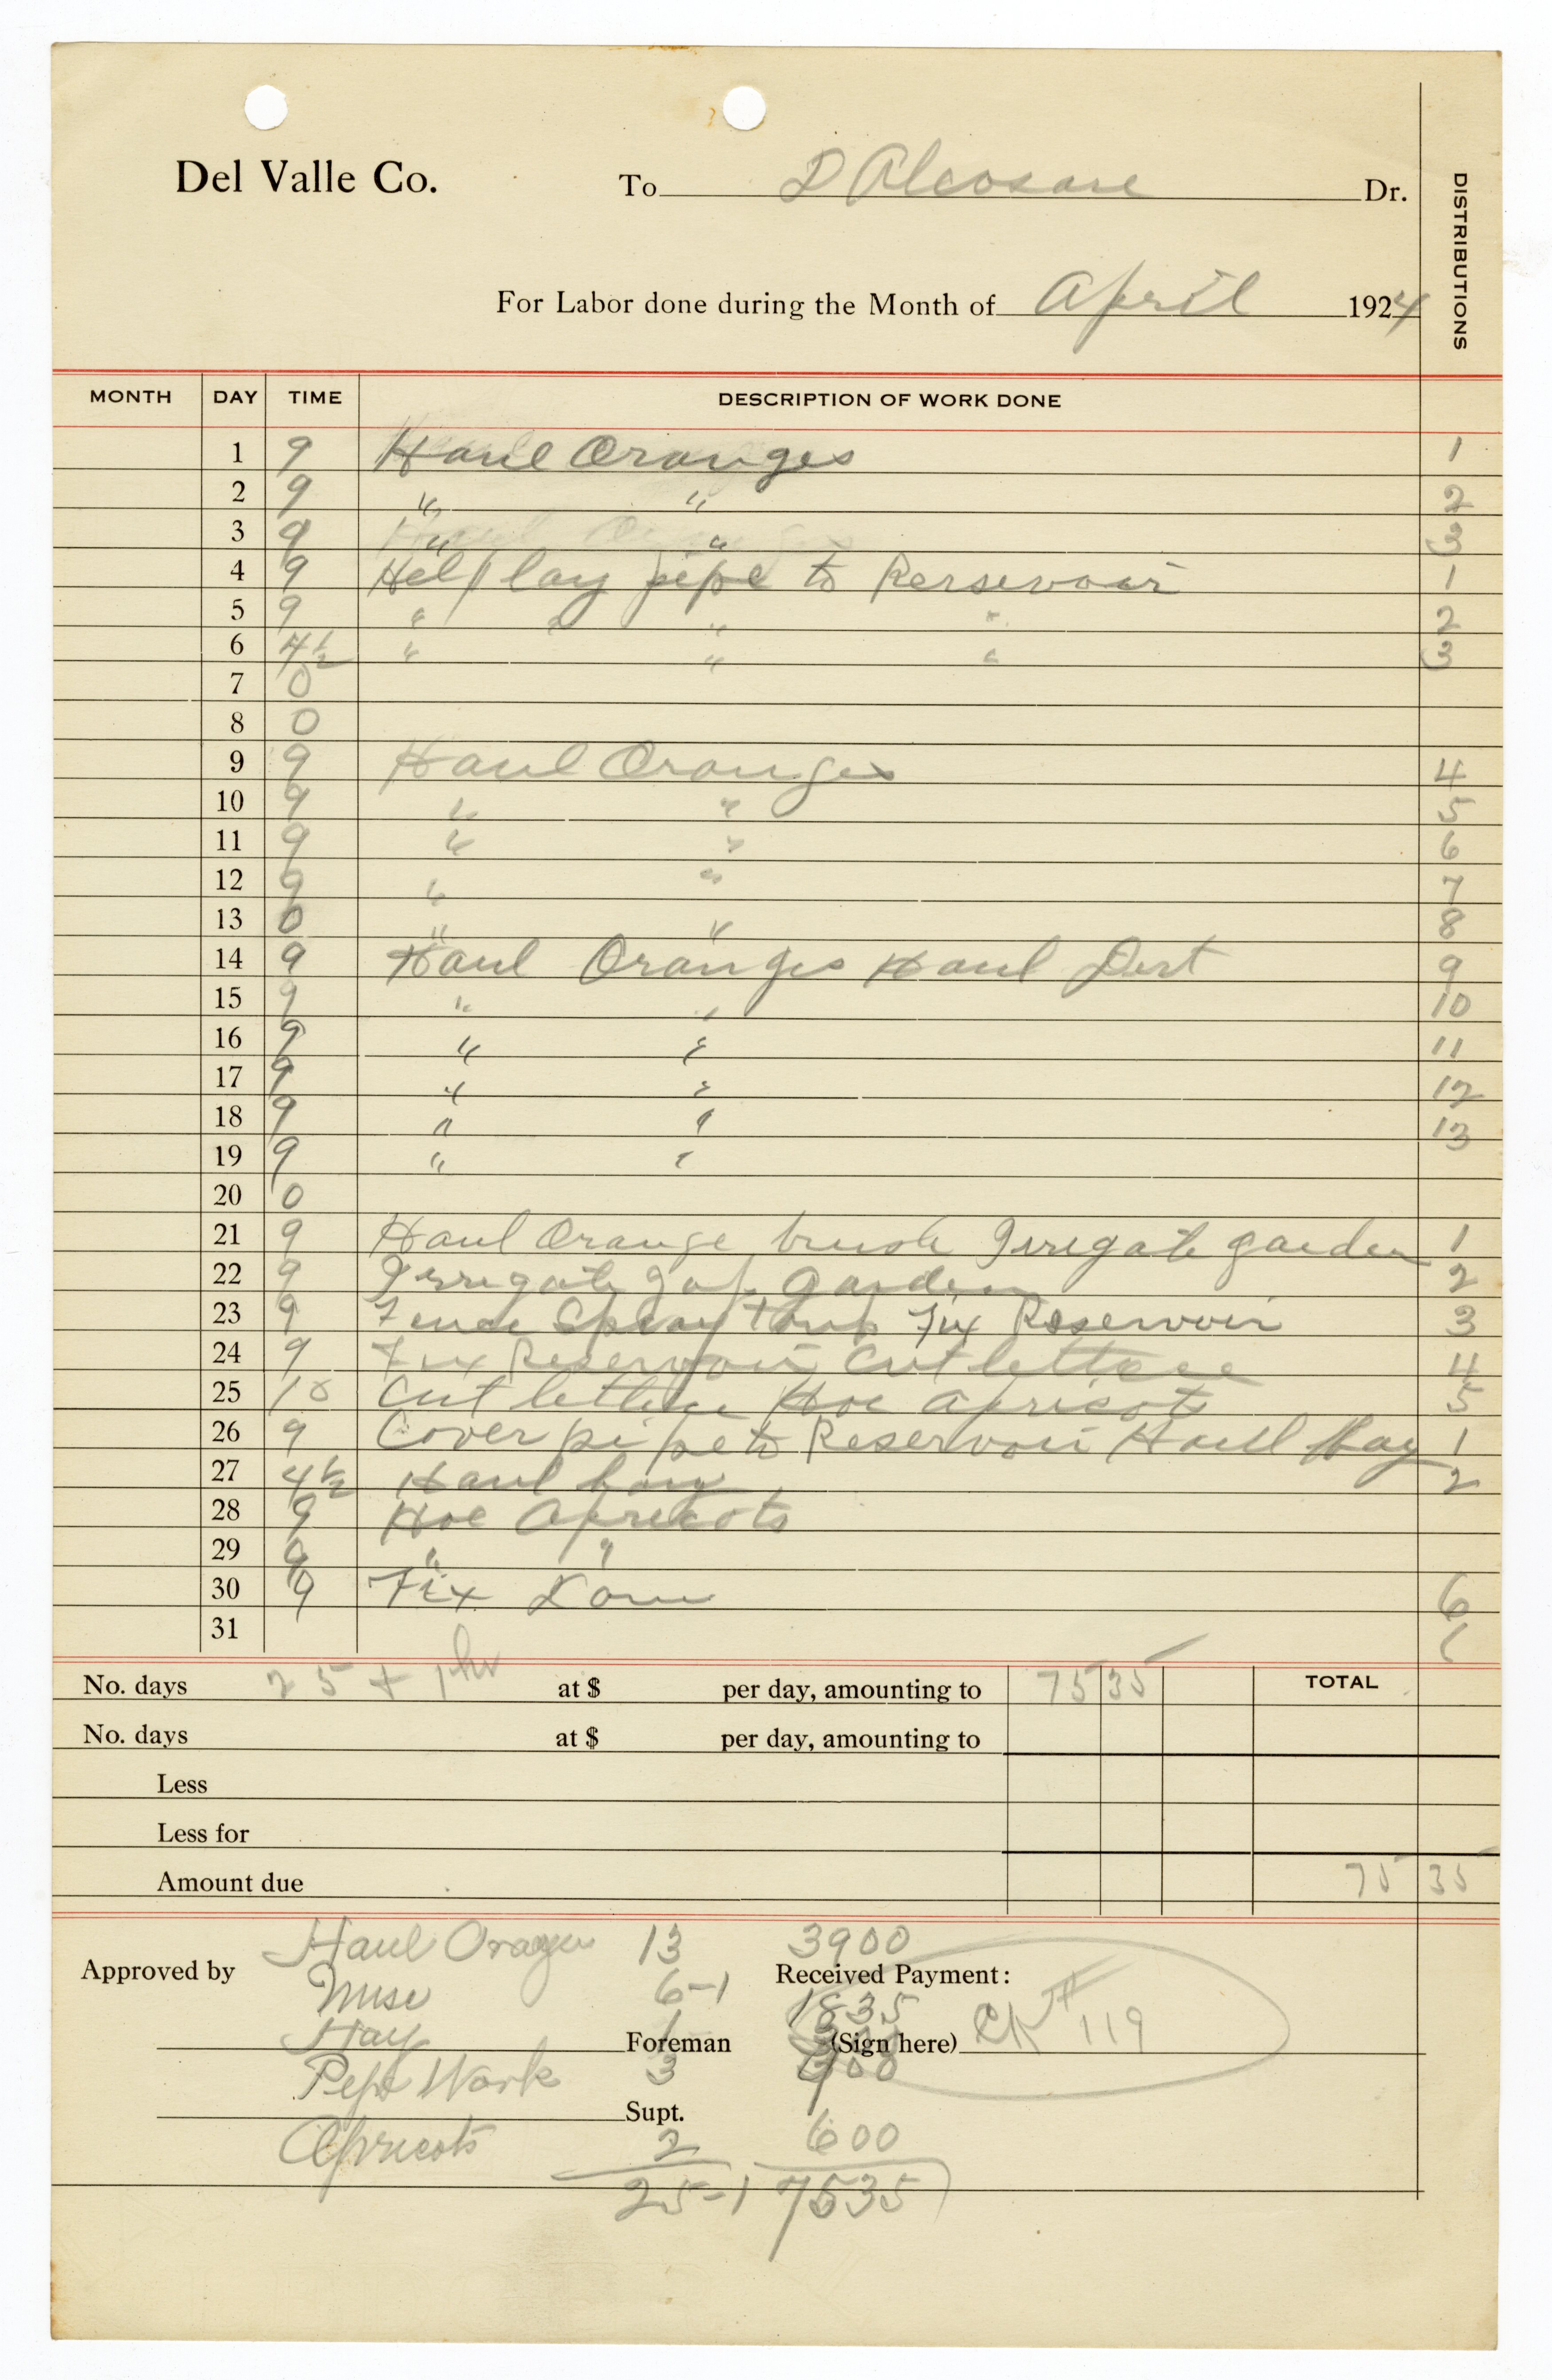 Del Valle Co. To D Alcosare Dr.
DISTRIBUTIONS
For Labor done during the Month of April 1924
MONTH DAY TIME DESCRIPTION OF WORK DONE
1 9 Haul Oranges 1
2 9 " " 2
3 9 " " 3
4 9 Help lay pipe to Rerservoir 1
5 9 " " " " 2
6 4½ " " " 3
7 0
8 0
9 9 Haul Oranges 4
10 9 " " 5
11 9 " " 6
12 9 " " 7
13 0 " " 8
14 9 Haul Oranges Haul Dirt 9
15 9 " " 10
16 9 " " 11
17 9 " " 12
18 9 " " 13
19 9 " "
20 0
21 9 Haul Orange brush Irregate garden 1
22 9 Irregate Jap Garden 2
23 9 Fence Spray Tank Fix Reservoir 3
24 9 Fix Reservoir Cut lettace 4
25 10 Cut lettuce Hoe apricots 5
26 9 Cover pipe to Reservoir Haul Hay 1
27 4½ Haul hay 2
28 9 Hoe Apricots
29 9 " "
30 9 Fix 6
31
No. days 25 + 1 hr at $ per day, amounting to 75 35 TOTAL
No. days at $ per day, amounting to
Less
Less for
Amount due 75 35
Haul Orages 13 3900
Approved by Received Payment:
Misc 6-1 1835
Hay 1 Foreman (Sign here) CK # 119
Pipe Work 3 900
Supt.
Apricots 2 600
25-1 7535